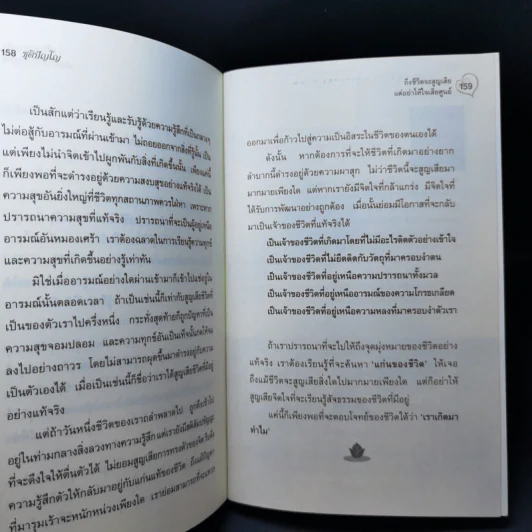 158 ชุติปัญโญ
เป็นสักแต่ว่าเรียนรู้และรับรู้ด้วยความรู้สึกที่เป็นกลางๆ
ไม่ต่อสู้กับอารมณ์ที่ผ่านเข้ามา ไม่ถอยออกจากสิ่งที่รู้นั้น เป็น
แต่เพียงไม่นำจิตเข้าไปผูกพันกับสิ่งที่เกิดขึ้นนั้น เพียงแค่นี้
ก็เพียงพอที่จะดำรงอยู่ด้วยความสงบสุขอย่างแท้จริงได้
ความสุขอันยิ่งใหญ่ที่ชีวิตทุกสถานภาพควรไม่ เพราะหาก
ปรารถนาความสุขที่แท้จริง ปรารถนาที่จะเป็นผู้อยู่เหนือ
อารมณ์อันหมองเศร้า เราต้องฉลาดในการเรียนรู้ความทุกข์
และความสุขที่เกิดขึ้นอย่างรู้เท่าทัน
มิใช่เมื่ออารมณ์อย่างใดผ่านเข้ามาก็เข้าไปแช่อยู่ใน
อารมณ์นั้นตลอดเวลา ถ้าเป็นเช่นนี้ก็เท่ากับสูญเสียชีวิตที่
เป็นของตัวเราไปครึ่งหนึ่ง กระทั่งสุดท้ายก็ถูกปัญหาที่เป็น
ความสุขจอมปลอม และความทุกข์อันเป็นเท็จนั้นกดให้จม
ลงไปอย่างถาวร โดยไม่สามารถผุดขึ้นมาดำรงอยู่กับความ
เป็นตัวเองได้ เมื่อเป็นเช่นนี้ก็ชื่อว่าเราได้สูญเสียชีวิตที่ดี
อย่างแท้จริง
แต่ถ้าวันหนึ่งชีวิตของเราถลำพลาดไป ถูกดึงเข้าไป
อยู่ในท่ามกลางสิ่งลวงทางความรู้สึก แต่เรายังมีสติ
ที่จะดึงใจให้ตื่นตัวได้ ไม่ยอมสูญเสียการทรงตัวของจิต
ความรู้สึกตัวให้กลับมาอยู่กับแก่นแท้ของชีวิต
ที่มารุมเร้าจะหนักหน่วงเพียงใด เราย่อมสามารถที่จะ
ถึงชีวิตจะสูญเสีย
แต่อย่าให้ใจเสียศูนย์
159
ออกมาเพื่อก้าวไปสู่ความเป็นอิสระในชีวิตของตนเองได้
ดังนั้น หากต้องการที่จะให้ชีวิตที่เกิดมาอย่างยาก
ลำบากนี้ดำรงอยู่ด้วยความผาสุก ไม่ว่าชีวิตนี้จะสูญเสียมา
มากมายเพียงใด แต่หากเรายังมีจิตใจที่กล้าแกร่ง มีจิตใจที่
ได้รับการพัฒนาอย่างถูกต้อง เมื่อนั้นย่อมมีโอกาสที่จะกลับ
มาเป็นเจ้าของชีวิตที่แท้จริงได้
เป็นเจ้าของชีวิตที่เกิดมาโดยที่ไม่มีอะไรติดตัวอย่างเข้าใจ
เป็นเจ้าของชีวิตที่ไม่ยึดติดกับวัตถุที่มาครอบงำตน
เป็นเจ้าของชีวิตที่อยู่เหนือความปรารถนาทั้งมวล
เป็นเจ้าของชีวิตที่อยู่เหนืออารมณ์ของความโกรธเกลียด
เป็นเจ้าของชีวิตที่อยู่เหนือความหลงที่มาครอบงำตัวเรา
ถ้าเราปรารถนาที่จะไปให้ถึงจุดมุ่งหมายของชีวิตอย่าง
แท้จริง เราต้องเรียนรู้ที่จะค้นหา 'แก่นของชีวิต' ให้เจอ
ถึงแม้ชีวิตจะสูญเสียสิ่งใดไปมากมายเพียงใด แต่ก็อย่าให้
สูญเสียจิตใจที่จะเรียนรู้สัจธรรมของชีวิตที่มีอยู่
แค่นี้ก็เพียงพอที่จะตอบโจทย์ของชีวิตได้ว่า 'เราเกิดมา
ทำไม'